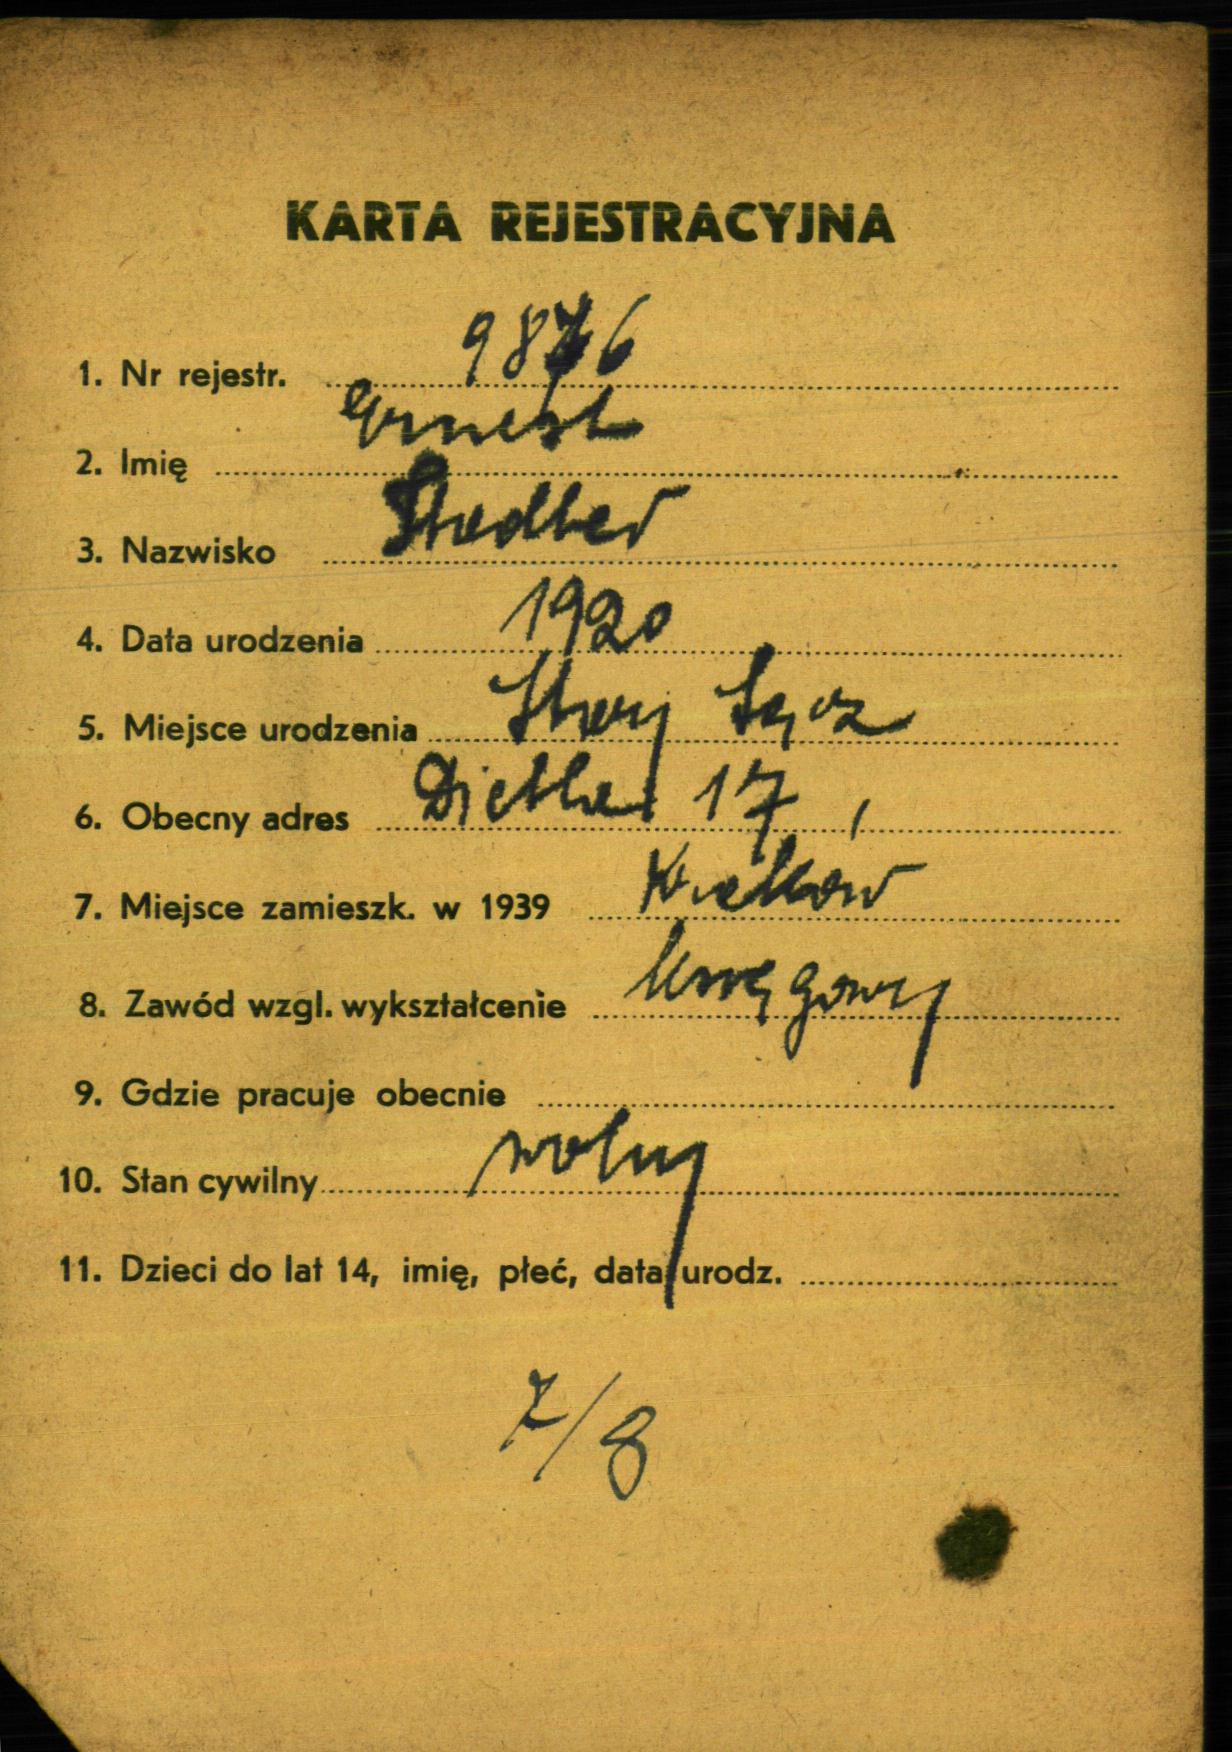 KARTA REJESTRACYJNA
1. Nr rejestr. 9876
2. Imię Ernest
3. Nazwisko
4. Data urodzenia 1920
5. Miejsce urodzenia Stary Sącz
6. Obecny adres Dietla 17
7. Miejsce zamieszk. w 1939 Kraków
8. Zawód wzgl. wykształcenie księgowy
9. Gdzie pracuje obecnie
10. Stan cywilny wolny
11. Dzieci do lat 14, imię, płeć, data urodz.
7/8